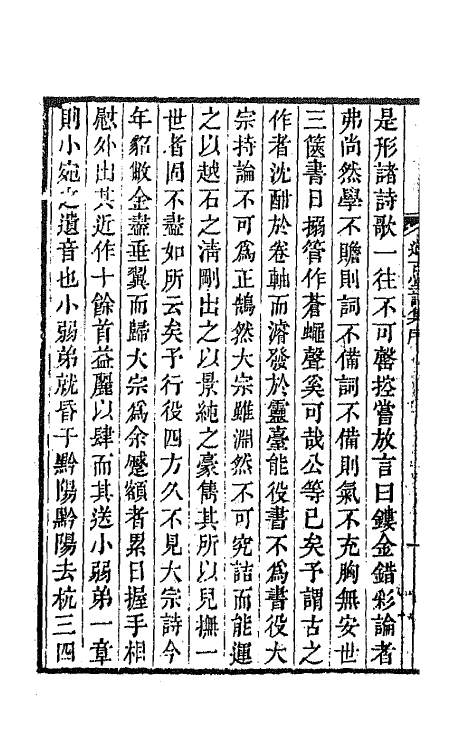 是形諸詩歌一往不可罄控嘗放言曰鏤金錯彩論者
弗尚然學不贍則詞不備詞不備則氣不充胸無安世
三篋書日搦管作蒼蠅聲奚可哉公等已矣予謂古之
作者沈酣於卷軸而濬發於靈臺能役書不為書役大
宗持論不可為正鵠然大宗雖淵然不可究詰而能運
之以越石之清剛出之以景純之豪雋其所以兒撫一
世者固不盡如所云矣予行役四方久不見大宗詩今
年貂敝金盡垂翼而歸大宗為余蹙額者累日握手相
慰外出其近作十餘首益麗以肆而其送小弱弟一章
則小宛之遺音也小弱弟就昏于黔陽黔陽去杭三四